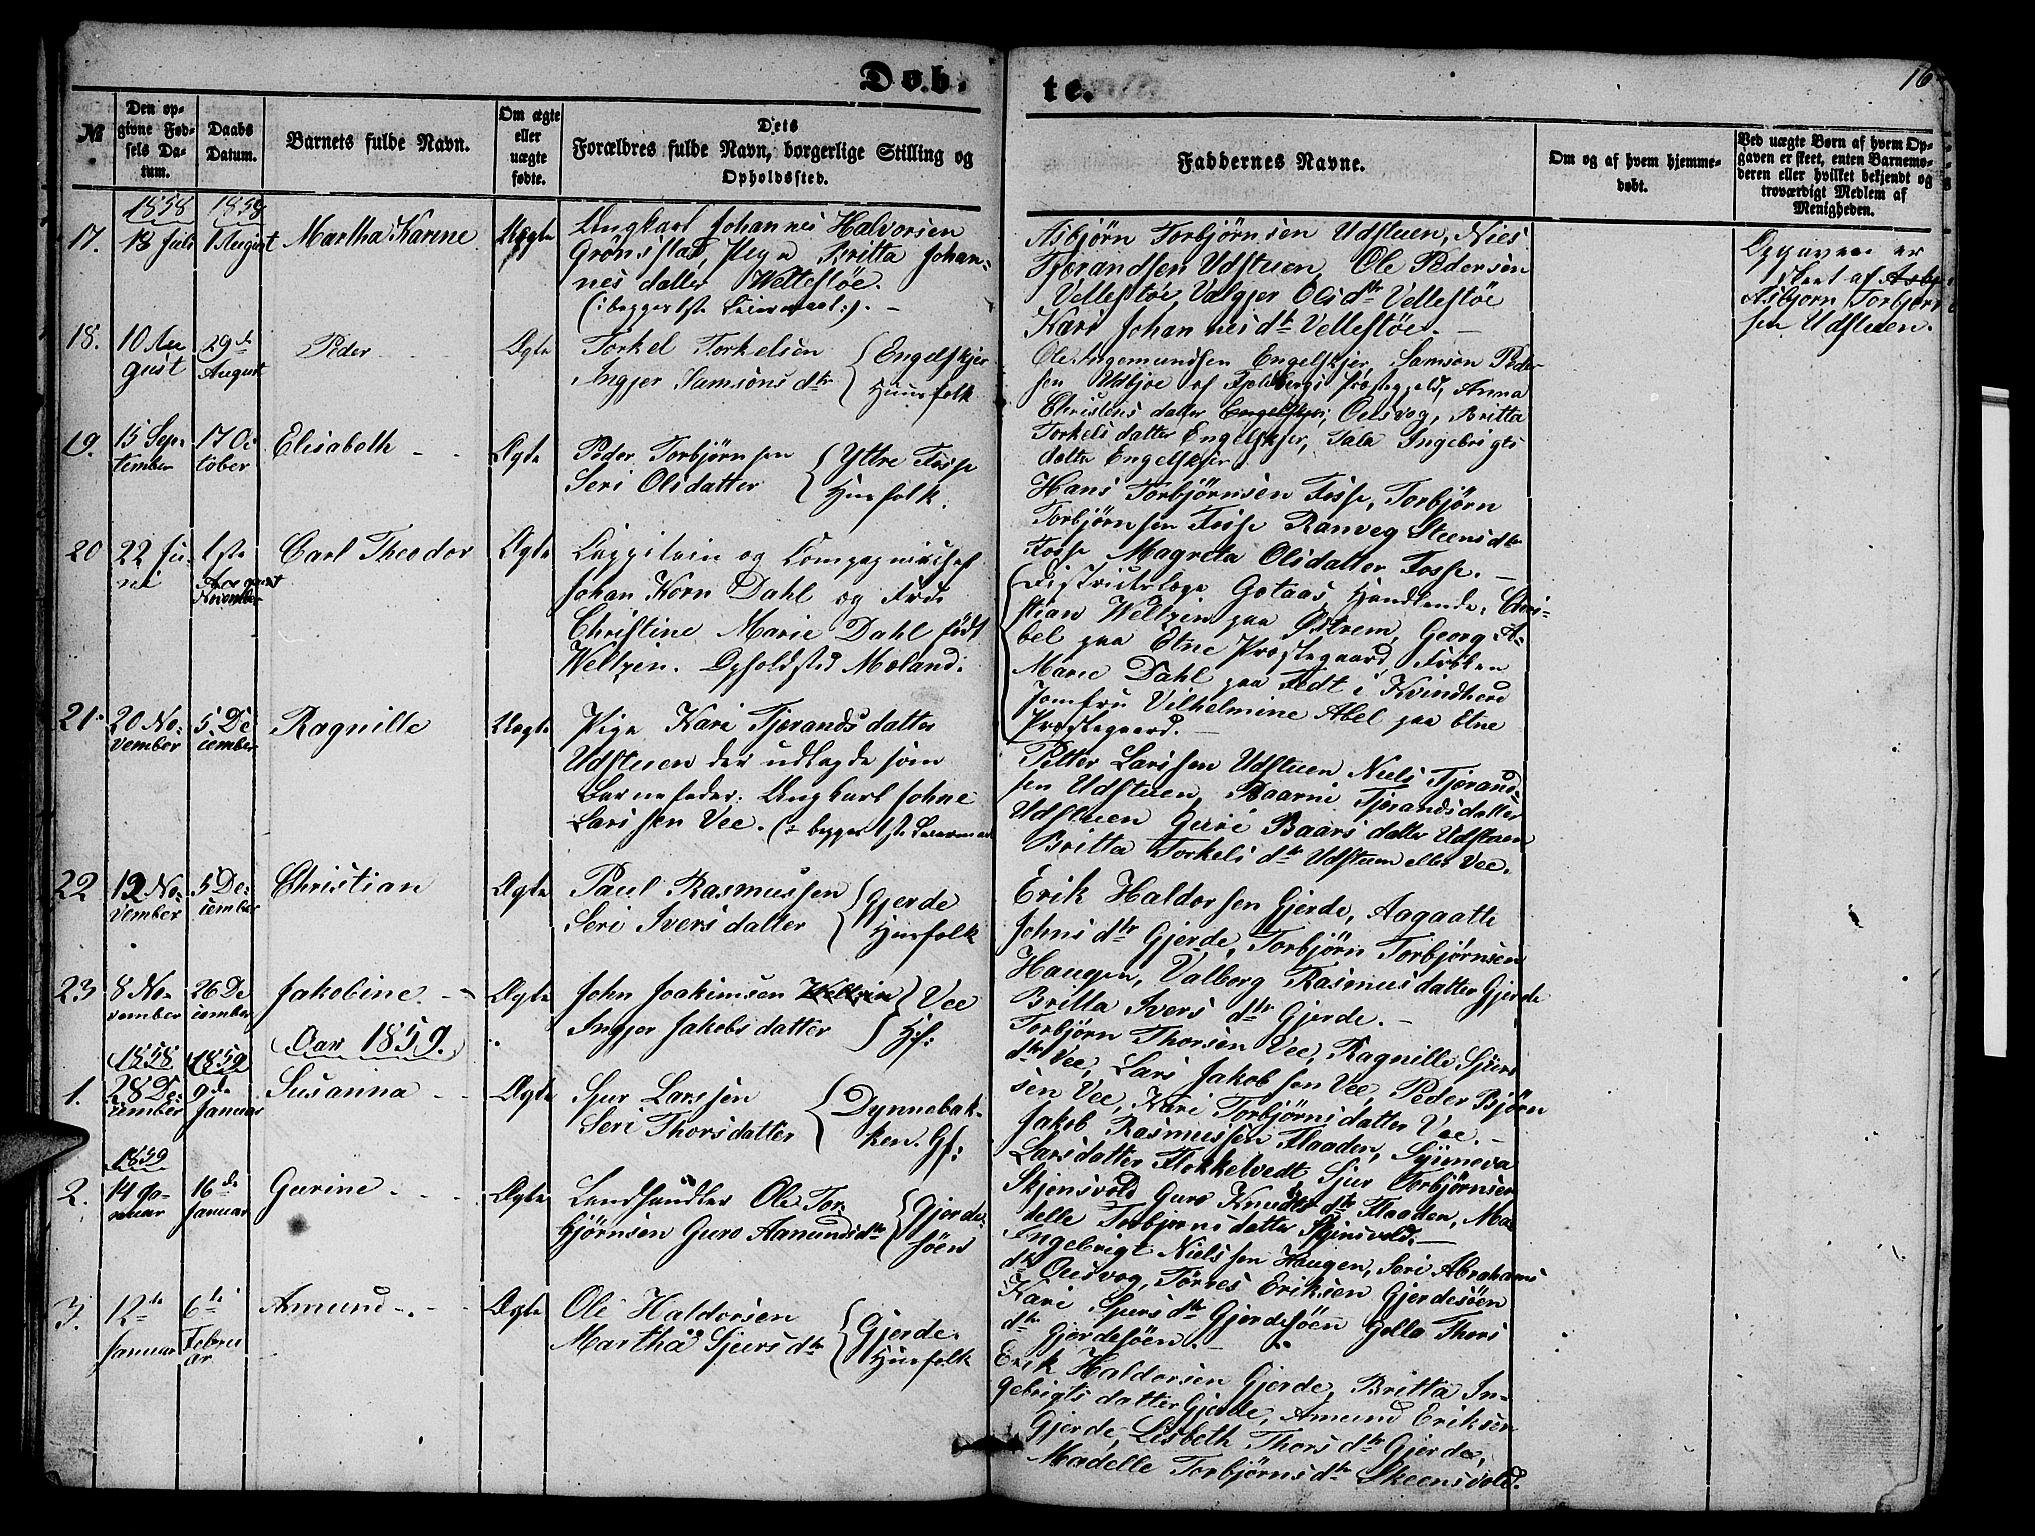 Døb-
te.
16
№
Den op-
givne Fød-
sels Da-
tum.
Daabs
Datum.
Barnets fulde Navn.
Om ægte
eller
uægte
fødte.
Dets
Forældres fulde Navn, borgerlige Stilling og
Opholdssted.
Faddernes Navne.
Om og af hvem hjemme-
døbt.
Ved uægte Børn af hvem Op-
gaven er skeet, enten Barnemo-
deren eller hvilket bekjendt og
troværdigt Medlem af
Menigheden.
1858 1858
17. 18 Juli 1 August Martha Karine Uægte
Ungkarl Johannes Halvorsen
Grønstad, Pige Britta Johan-
nes datter Vellestøe.
(: begges 1ste Leiermaal:). -
Asbjørn Torbjørnsen Udstuen, Niels
Tjerandsen Udstuen, Ole Pedersen
Vellestøe, Valgjer Olsdtr Vellestøe
Kari Johannesdtr Vellestøe. -
Opgaven er
skeet af
Asbjørn Torbjørn-
sen Udstuen.
18. 10 Au-
gust 29de
August Peder Ægte
Torkel Torkelsen
Ingjer Samsons dtr
Engelskjer
Huusfolk
Ole Ingemundsen Engelskjer, Samson Peder-
sen Udbjoe af Fjeldbergs Præstegjeld, Anna
Christens datter Engelskjer, Ousvog, Britta
Torkels datter Engelskjer, Ingebrigts
datter Engelskjer.
19. 15 Sep-
tember 17 Oc-
tober Elisabeth - - Ægte
Peder Torbjørnsen
Seri Olsdatter
Yttre Fosse
Huusfolk.
Hans Torbjørnsen Fosse, Torbjørn
Torbjørnsen Fosse Ranveg Steensdtr
Fosse Magreta Olsdatter Fosse. -
20 22 Ju-
ni 1ste
August
November Carl Theodor Ægte
Cappitain og Compagnichef
Johan Korn Dahl og Frue
Christine Marie Dahl født
Weltzin. Opholdsted Moland.
Districtslæge Gotaas, Handlende Chri-
stian Weltzin paa Østrem, Georg A-
bel paa Etne Præstegaard, Frøken
Marie Dahl paa Fedt i Kvindherd
Jomfru Vilhelmine Abel paa Etne
Præstegaard. -
21. 20 No-
vember 5 De-
cember Ragnille Uægte
Pige Kari Tjerandsdatter
Udstuen der udlagde som
Barnefader: Ungkarl Johne
Larssen Vee. (: begges 1ste Leiermaal
Petter Larssen Udstuen Niels Tjerand-
sen Udstuen, Tjerandsdatter
Udstuen Guri Baarsdatter Udstuen
Britta Torkels dtr Udstuen eller Vee.
22 12 No-
vember 5 De-
cember Christian Ægte
Paul Rasmussen
Seri Ivers datter
Gjerde
Huusfolk
Erik Haldorsen Gjerde, Aagaatte
Johns dtr Gjerde, Torbjørn Torbjørnsen
Haugen, Valborg Rasmusdatter Gjerde
Britta Ivers dtr Gjerde. -
23 8 No-
vember 26 De-
cember Jakobine. - Ægte
John Joakimsen Weltzin
Ingjer Jakobs datter
Vee
Hf:
Torbjørn Thorsen Vee, Ragnille Sjurs
dtr Vee, Lars Jakobsen Vee, Peder Bjørn
sen Vee, Kari Torbjørnsdatter Vee. -
Aar 1859.
1858 1859
1. 28 De-
cember 9de
Januar Susanna - - Ægte
Sjur Larssen
Seri Thorsdatter
Dynnebak-
ken. Gf:
Jakob Rasmussen Flaaden, Synneva
Larsdatter Flokkelvedt Sjur Torbjørnsen
Skjensvold Guro Knuds dtr Flaaden, Ma-
delle Torbjørns datter Skjensvold. -
1859
2. 14 Ja-
nuar 16de
Januar Gurine - - - Ægte
Landhandler Ole Tor-
bjørnsen Guro Aamunds dtr
Gjerde-
søen
Ingebrigt Nielssen Haugen, Seri Abrahams
dtr Ousvog, Tørres Eriksen Gjerdesøen
Kari Sjurs dtr Gjerdesøen Golla Thors
dtr Gjerdesøen. -
3. 12te
Januar 6te
Febru-
ar Amund - - Ægte
Ole Haldorsen
Martha Sjurs dtr
Gjerde.
Huusfolk
Erik Haldorsen Gjerde, Britta In-
gebrigts datter Gjerde, Amund Eriksen
Gjerde, Lisbeth Thors dtr Gjerde,
Madelle Torbjørns dtr Skeensvold.